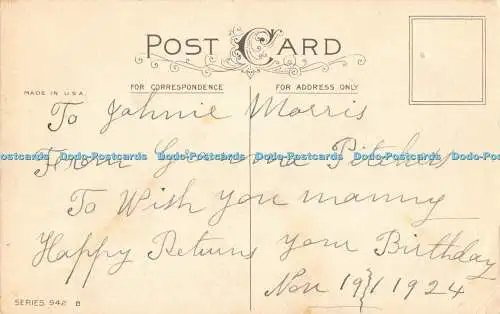 POST CARD
FOR CORRESPONDENCE
FOR ADDRESS ONLY
MADE IN U.S.A.
To Johnie Morris
From Gramma Pitchers
To Wish you manny
Happy Returns your Birthday
Nov 19 1924
SERIES 942 B
Dodo-Postcards Dodo-Postcards Dodo-Postcards Dodo-Postcards Dodo-Postcards